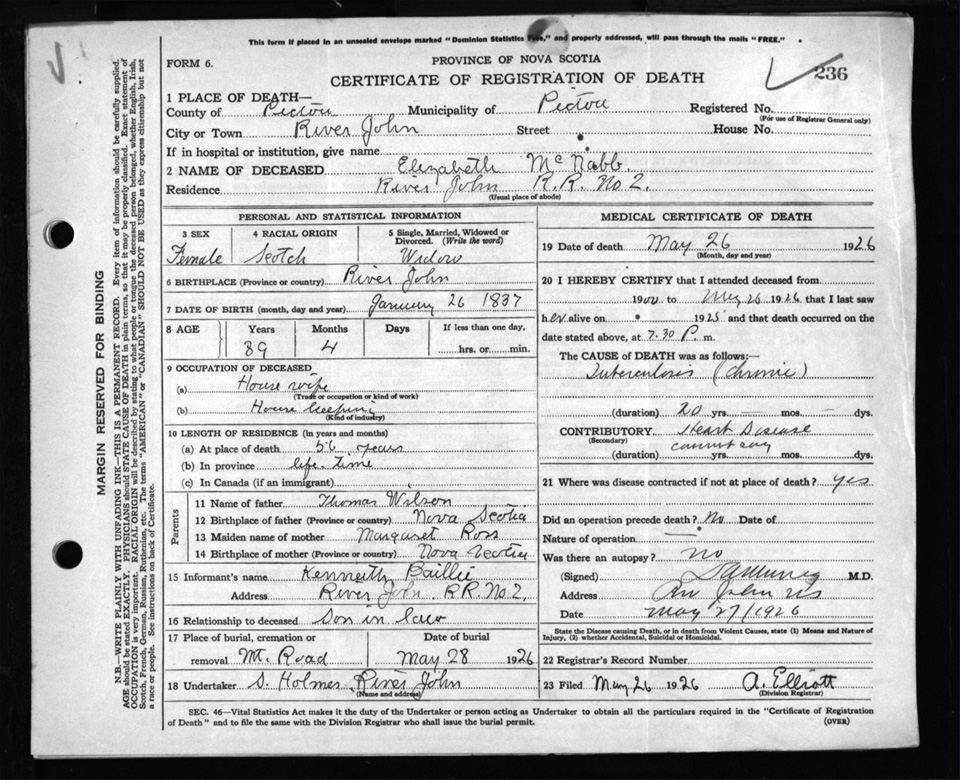 This form if placed in an unsealed envelope marked "Dominion Statistics Free," and properly addressed, will pass through the mails "FREE."
FORM 6.
PROVINCE OF NOVA SCOTIA
CERTIFICATE OF REGISTRATION OF DEATH
236
1 PLACE OF DEATH—
County of Pictou Municipality of Pictou Registered No.
(For use of Registrar General only)
City or Town River John Street House No.
If in hospital or institution, give name
2 NAME OF DECEASED Elizabeth McNabb
Residence River John R.R. No 2.
(Usual place of abode)
PERSONAL AND STATISTICAL INFORMATION
3 SEX 4 RACIAL ORIGIN 5 Single, Married, Widowed or Divorced. (Write the word)
Female Scotch Widow
6 BIRTHPLACE (Province or country) River John
7 DATE OF BIRTH (month, day and year) January 26 1837
8 AGE Years Months Days If less than one day,
89 4 hrs. or min.
9 OCCUPATION OF DECEASED
(a) House wife
(Trade or occupation or kind of work)
(b) House keeping
(Kind of industry)
10 LENGTH OF RESIDENCE (in years and months)
(a) At place of death 56 years
(b) In province life time
(c) In Canada (if an immigrant)
Parents
11 Name of father Thomas Wilson
12 Birthplace of father (Province or country) Nova Scotia
13 Maiden name of mother Margaret Ross
14 Birthplace of mother (Province or country) Nova Scotia
15 Informant's name Kenneth Baillie
Address River John R.R. No 2,
16 Relationship to deceased Son in law
17 Place of burial, cremation or Date of burial
removal Mt. Road May 28 1926
18 Undertaker S. Holmes River John
(Name and address)
MEDICAL CERTIFICATE OF DEATH
19 Date of death May 26 1926
(Month, day and year)
20 I HEREBY CERTIFY that I attended deceased from
1900 to May 26 1926 that I last saw
her alive on 1925 and that death occurred on
date stated above, at 7.30 P. m.
The CAUSE of DEATH was as follows:—
Tuberculosis (Chronic)
(duration) 20 yrs. — mos. — dys.
CONTRIBUTORY Heart Disease
(Secondary) cannot say
(duration) yrs. mos. dys.
21 Where was disease contracted if not at place of death? yes
Did an operation precede death? No Date of
Nature of operation —
Was there an autopsy? no
(Signed) M.D.
Address John NS
Date May 27/1926
State the Disease causing Death, or in death from Violent Causes, state (1) Means and Nature of
Injury, (2) whether Accidental, Suicidal or Homicidal.
22 Registrar's Record Number
23 Filed May 26 1926 A. Elliott
(Division Registrar)
SEC. 46—Vital Statistics Act makes it the duty of the Undertaker or person acting as Undertaker to obtain all the particulars required in the "Certificate of Registration
of Death" and to file the same with the Division Registrar who shall issue the burial permit.
(OVER)
MARGIN RESERVED FOR BINDING
N.B.—WRITE PLAINLY WITH UNFADING INK—THIS IS A PERMANENT RECORD. Every item of information should be carefully supplied.
AGE should be stated EXACTLY. PHYSICIANS should STATE CAUSE OF DEATH in plain terms, so that it may be properly classified. Exact statement of
OCCUPATION is very important. RACIAL ORIGIN will be described by stating to what people or tongue the deceased person belonged, whether English, Irish,
Scotch, French, German, Russian, Ruthenian, etc. The terms "AMERICAN" or "CANADIAN" SHOULD NOT BE USED as they express citizenship but not
a race or people. See instructions on back of Certificate.